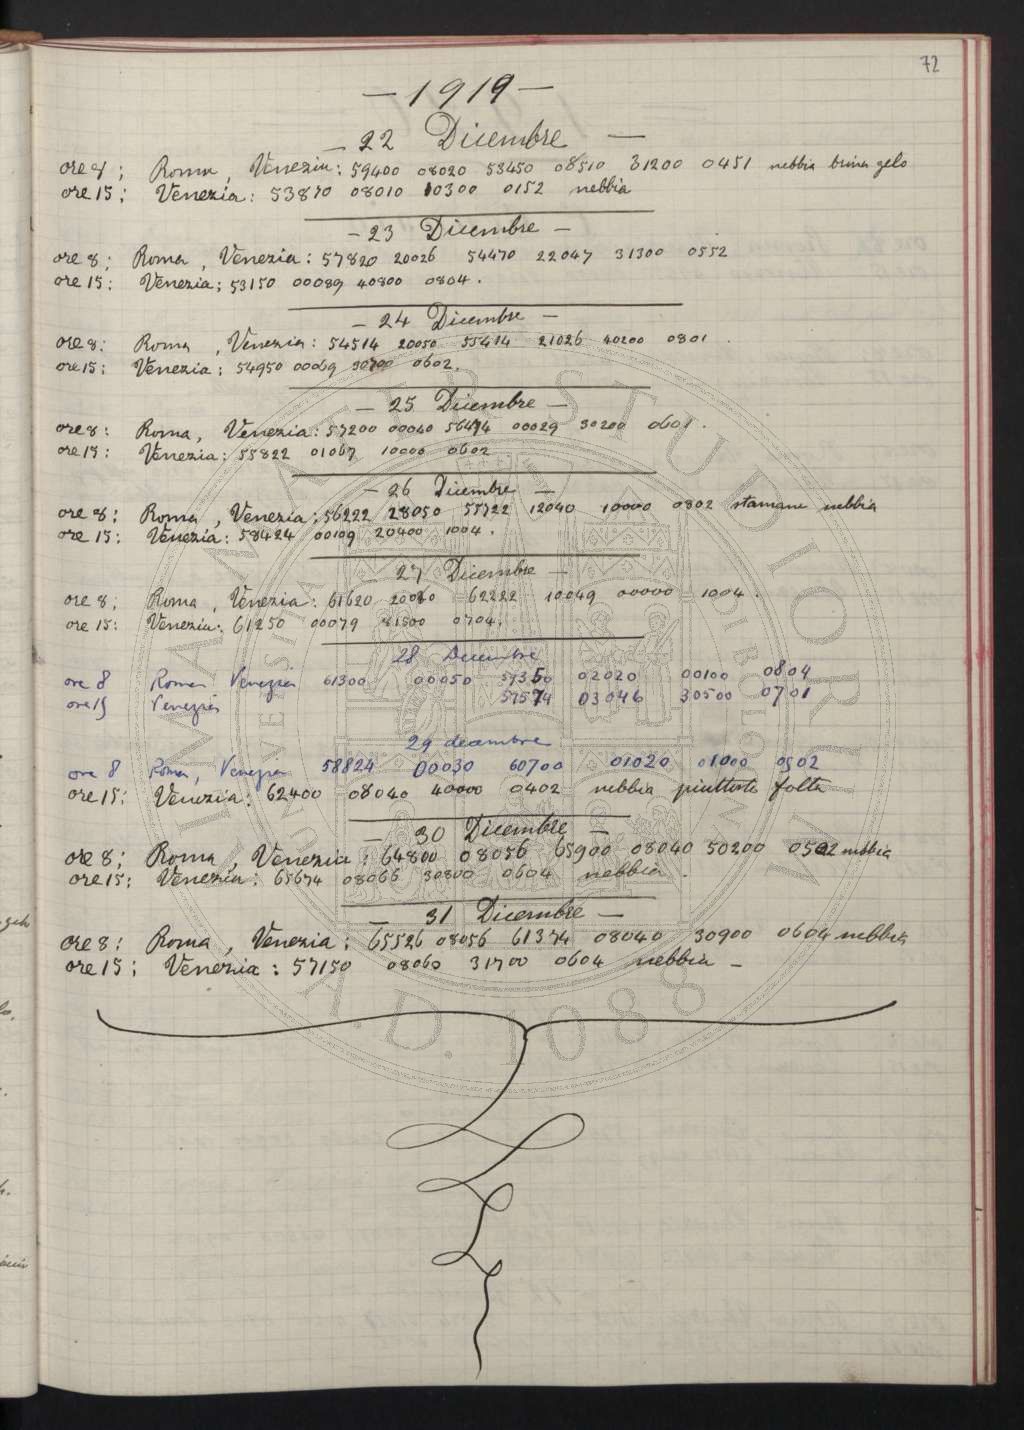 72
— 1919 —
— 22 Dicembre —
ore 8; Roma, Venezia: 59400 08020 53450 08510 31200 0451 nebbia brina gelo
ore 15; Venezia: 53870 08010 10300 0152 nebbia
— 23 Dicembre —
ore 8; Roma, Venezia: 57820 20026 54470 22047 31300 0552
ore 15; Venezia; 53150 00089 40800 0804.
— 24 Dicembre —
ore 8: Roma, Venezia: 54514 20050 55414 21026 40200 0801
ore 15; Venezia; 54950 00069 0602.
— 25 Dicembre —
ore 8: Roma, Venezia: 57200 00040 56474 00029 30200 0601.
ore 15: Venezia: 55822 01067 10000 0602
— 26 Dicembre —
ore 8; Roma, Venezia: 56222 28050 55722 12040 10000 0802 stamane nebbia
ore 15: Venezia: 58424 00109 20400 1004.
27 Dicembre —
ore 8; Roma, Venezia: 61620 62222 10049 00000 1004.
ore 15: Venezia: 61250 00079 0704.
28 Dicembre
ore 8 Roma Venezia 61300 00050 59350 02020 00100 0804
ore 15 Venezia 59574 03046 30500 0701
29 decembre
ore 8 Roma, Venezia 58824 00030 60700 01020 01000 0502
ore 15: Venezia: 62400 08040 40000 0402 nebbia piuttosto folta
— 30 Dicembre —
ore 8; Roma, Venezia: 64800 08056 65900 08040 50200 0502 nebbia
ore 15; Venezia: 65674 08066 30800 0604 nebbia.
— 31 Dicembre —
ore 8: Roma, Venezia; 65526 08056 61374 08040 30900 0604 nebbia
ore 15; Venezia: 57150 08060 31700 0604 nebbia —
ALMA MATER STUDIORUM
UNIVERSITA
BIBLIO
A.D. 1088